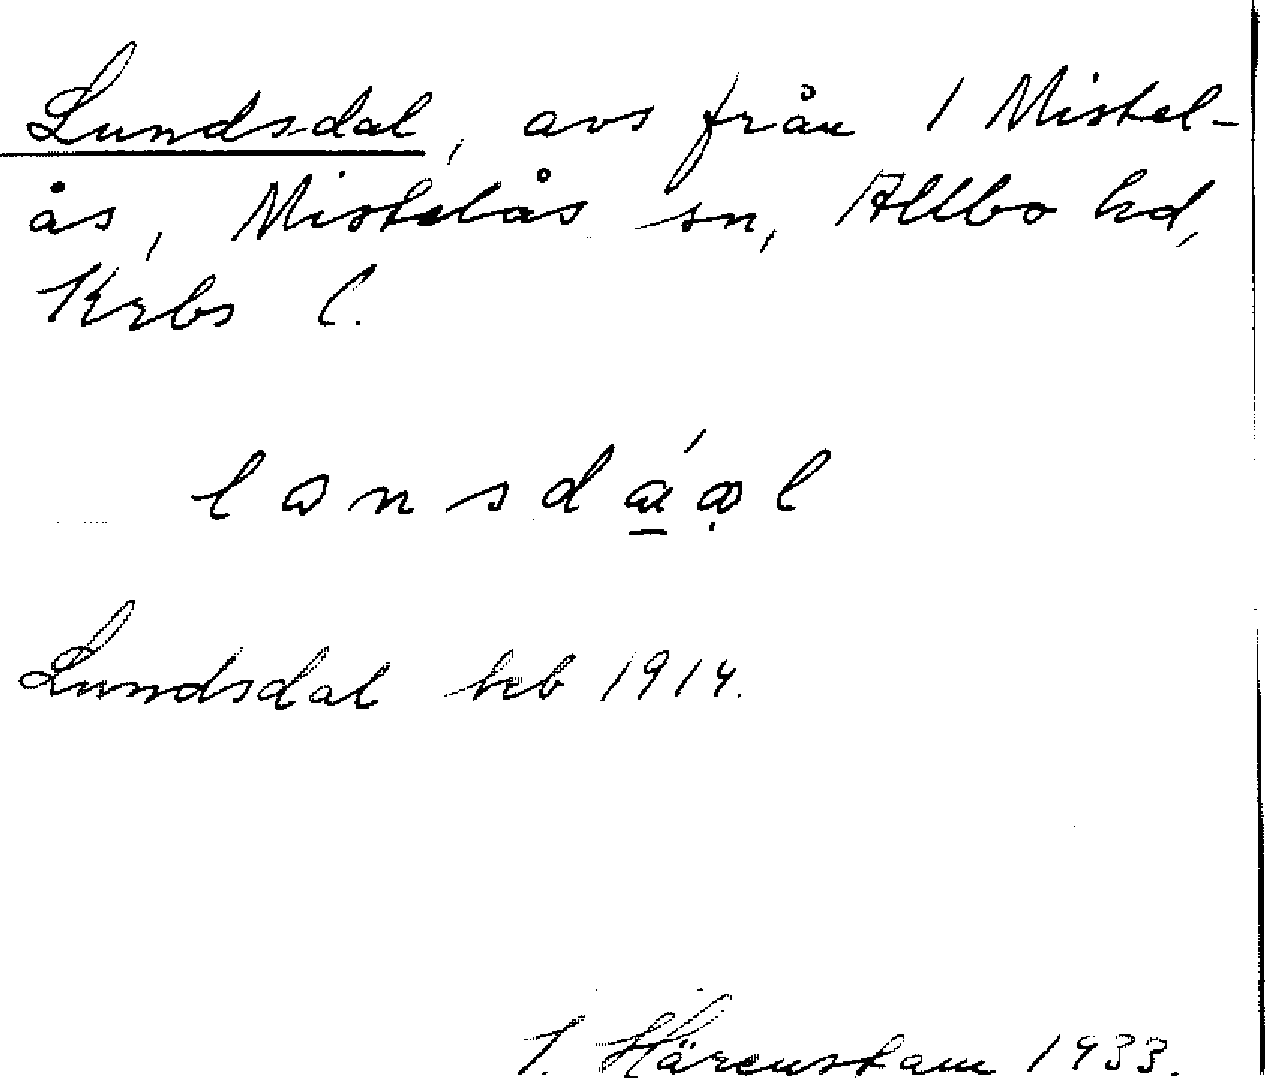 Lundsdal, avs från 1 Mistel-
ås, Mistelås sn, Allbo hd,
Krbs l.
Lundsdal beb 1914.
J. Härenstam 1933.